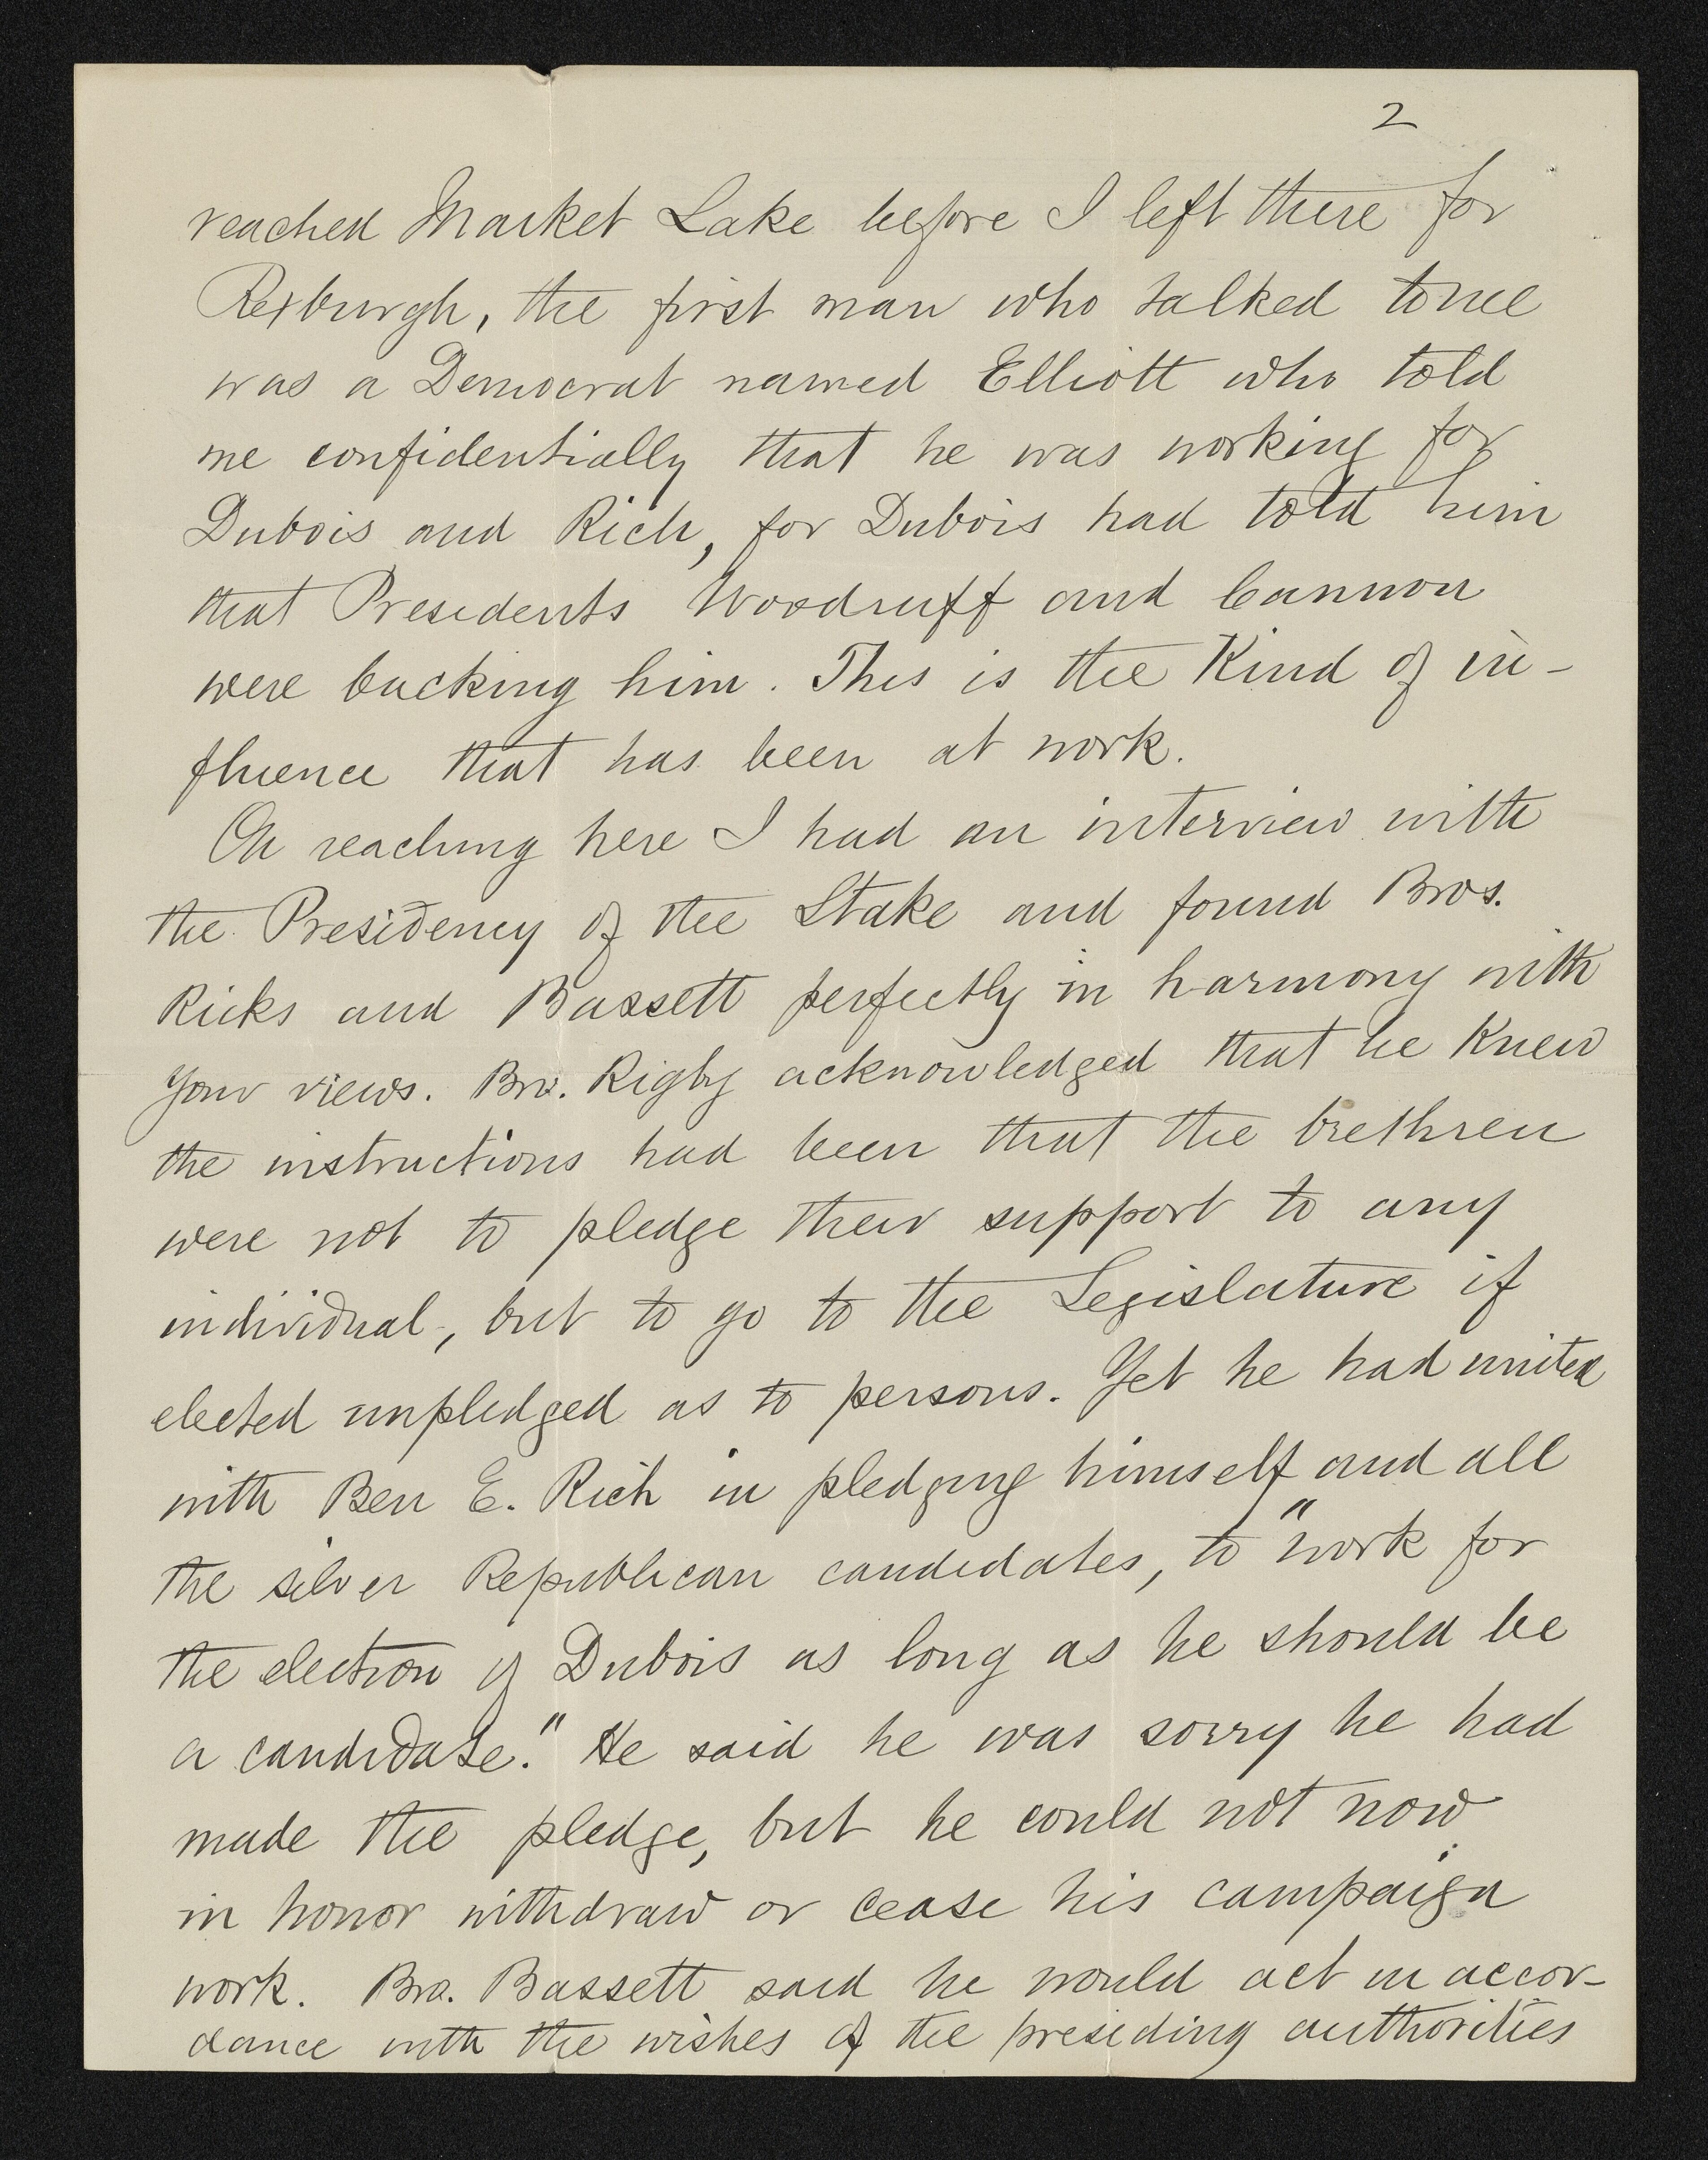 2
reached Market Lake before I left there for
Rexburgh, the first man who talked to me
was a Democrat named Elliott who told
me confidentially that he was working for
Dubois and Rich, for Dubois had told him
that Presidents Woodruff and Cannon
were backing him. This is the Kind of in-
fluence that has been at work.
On reaching here I had an interview with
the Presidency of the Stake and found Bros.
Ricks and Bassett perfectly in harmony with
your views. Bro. Rigby acknowledged that he Knew
the instructions had been that the brethren
were not to pledge their support to any
individual, but to go to the Legislature if
elected unpledged as to persons. Yet he had united
with Ben E. Rich in pledging himself and all
the silver Republican candidates, to "work for
the election of Dubois as long as he should be
a candidate." He said he was sorry he had
made the pledge, but he could not now
in honor withdraw or cease his campaign
work. Bro. Bassett said he would act in accor-
dance with the wishes of the presiding authorities